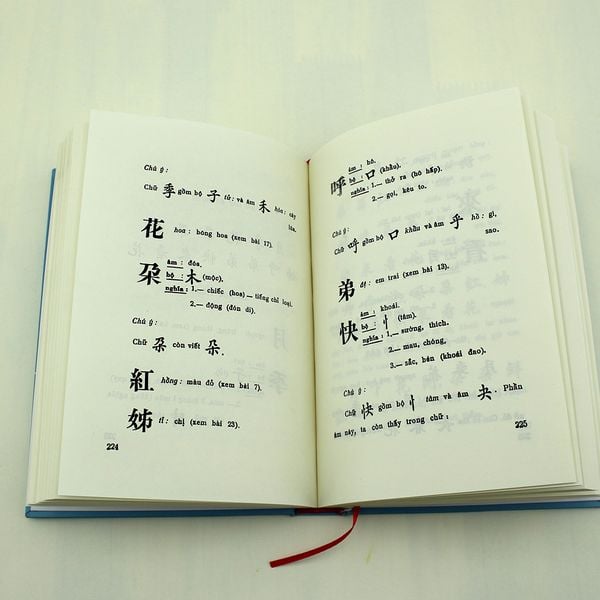 Chú ý:
Chữ 季 gồm bộ 子 tử: và âm 禾 hòa: cây lúa.
花 hoa: bông hoa (xem bài 17).
朶 âm: đóa.
bộ: 木 (mộc).
nghĩa: 1.— chiếc (hoa) — tiếng chỉ loại.
2.— động (đón di).
Chú ý:
Chữ 朶 còn viết 朵.
紅 hồng: màu đỏ (xem bài 7).
姊 tỉ: chị (xem bài 23).
224
呼 âm: hô.
bộ: 口 (khẩu).
nghĩa: 1.— thở ra (hô hấp).
2.— gọi, kêu to.
Chú ý:
Chữ 呼 gồm bộ 口 khẩu và âm 乎 hồ: gì, sao.
弟 đệ: em trai (xem bài 13).
快 âm: khoái.
bộ: 忄 (tâm).
nghĩa: 1.— sướng, thích.
2.— mau, chóng,
3.— sắc, bén (khoái đao).
Chú ý:
Chữ 快 gồm bộ 忄 tâm và âm 夬. Phần
âm này, ta còn thấy trong chữ
225